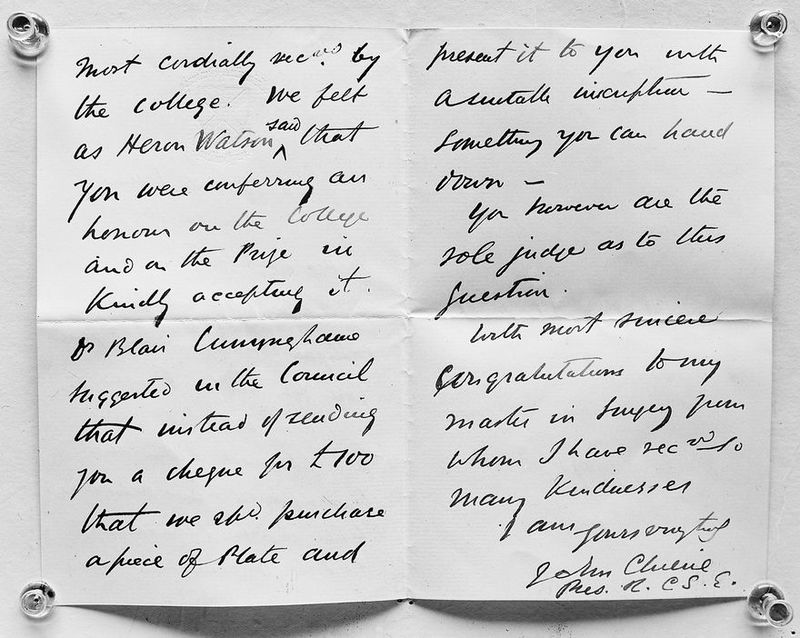 most cordially recᵛᵈ. by
the College. We felt
as Heron Watson said that
you were conferring an
honour on the College
and on the Prize in
kindly accepting it.
Dr Blair Cunynghame
suggested in the Council
that instead of sending
you a cheque for £100
that we shᵈ. purchase
a piece of Plate and
present it to you with
a suitable inscription —
something you can hand
down —
You however are the
sole judge as to this
question.
With most sincere
congratulations to my
master in Surgery from
whom I have recᵛᵈ so
many kindnesses
I am yours very truly
John Chiene
Pres. R. C. S. E.